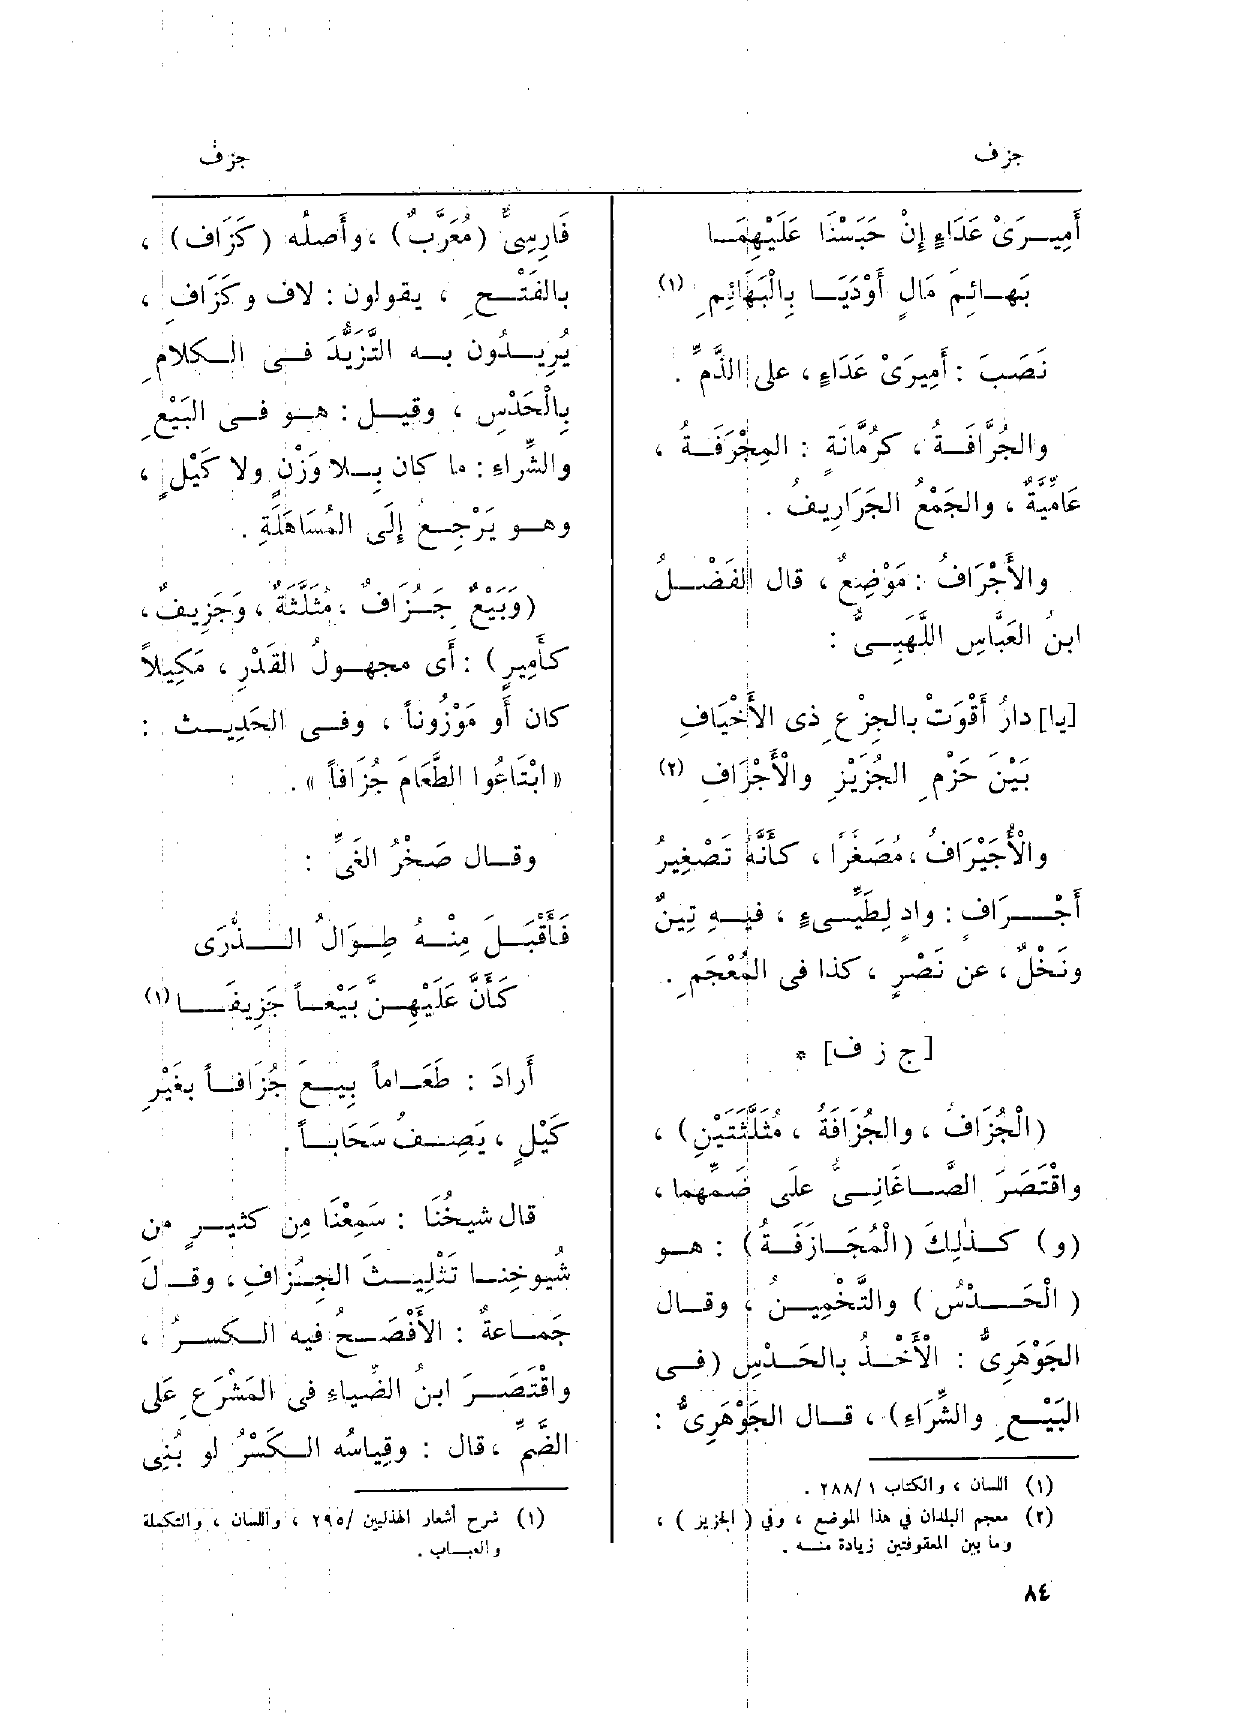 جزف
جزف
أَمِيرَىْ عَدَاءٍ إِنْ حَبَسْنَا عَلَيْهِمَا
بَهائِمَ مَالٍ أَوْدَيَا بِالْبَهَائِمِ (١)
نَصَبَ : أَمِيرَىْ عَدَاءٍ ، على الذَّمِّ .
والجُرَّافَةُ ، كرُمَّانَةٍ : المِجْرَفَةُ ،
عَامِّيَّةٌ ، والجَمْعُ الجَرَارِيفُ .
والأَجْرَافُ : مَوْضِعٌ ، قال الفَضْلُ
ابنُ العَبَّاسِ اللَّهَبِىُّ :
[يا] دارُ أَقْوَتْ بالجِزْعِ ذى الأَخْيَافِ
بَيْنَ حَزْمِ الجُزَيْزِ والْأَجْرَافِ (٢)
والْأُجَيْرَافُ ، مُصَغَّرًا ، كأَنَّهُ تَصْغِيرُ
أَجْرَافٍ : وادٍ لِطَيِّىءٍ ، فيهِ تِينٌ
ونَخْلٌ ، عن نَصْرٍ ، كذا فى المُعْجَمِ .
[ج ز ف] *
(الْجُزَافُ ، والجُزَافَةُ ، مُثَلَّثَتَيْنِ) ،
واقْتَصَرَ الصَّاغَانِىُّ على ضَمِّهِما ،
(و) كذٰلِكَ (الْمُجَازَفَةُ) : هو
(الْحَدْسُ) والتَّخْمِينُ ، وقال
الجَوْهَرِىُّ : الْأَخْذُ بالحَدْسِ (فى
البَيْعِ والشِّرَاءِ) ، قال الجَوْهَرِىُّ :
(١) اللسان ، والكتاب ١ /٢٨٨ .
(٢) معجم البلدان في هذا الموضع ، وفي ( الجزيز ) ،
وما بين المعقوفتين زيادة منه .
فَارِسِىٌّ (مُعَرَّبٌ) ، وأَصلُه (كَزَاف) ،
بالفَتْحِ ، يقولون : لاف وكَزَافِ ،
يُرِيدُون به التَّزَيُّدَ فى الكلامِ
بِالْحَدْسِ ، وقيل : هو فى البَيْعِ
والشِّراءِ : ما كان بِلا وَزْنٍ ولا كَيْلٍ ،
وهو يَرْجِعُ إِلَى المُسَاهَلَةِ .
(وَبَيْعٌ جَُِزَافٌ ، مُثَلَّثَةً ، وَجَزِيفٌ ،
كأَمِيرٍ) : أَى مجهولُ القَدْرِ ، مَكِيلاً
كان أَو مَوْزُوناً ، وفى الحَدِيث :
« ابْتَاعُوا الطَّعَامَ جُزَافاً » .
وقال صَخْرُ الغَىِّ :
فَأَقْبَلَ مِنْهُ طِوَالُ الذُّرَى
كَأَنَّ عَلَيْهِنَّ بَيْعاً جَزِيفَا (١)
أَرادَ : طَعَاماً بِيعَ جُزَافاً بغَيْرِ
كَيْلٍ ، يَصِفُ سَحَاباً .
قال شيخُنَا : سَمِعْنَا مِن كثيرٍ من
شُيوخِنا تَثْلِيثَ الجِزافِ ، وقالَ
جَماعةٌ : الأَفْصَحُ فيه الكسرُ ،
واقْتَصَرَ ابنُ الضِّياءِ فى المَشْرَعِ عَلى
الضَّمِّ ، قال : وقِياسُه الكَسْرُ لو بُنِى
(١) شرح أشعار الهذليين /٢٩٥ ، واللسان ، والتكملة
والعباب .
٨٤